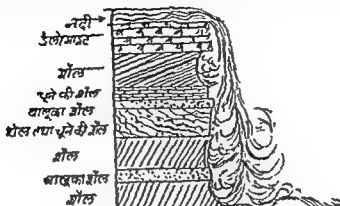 नदी
डैलोमाइट
शेल
चूने की शेल
बालुका शेल
शेल तथा चूने की शेल
शेल
बालुका शेल
शेल